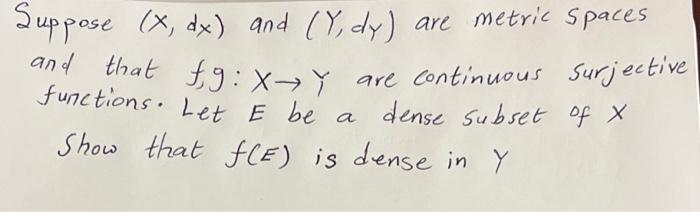 Suppose (X, dx) and (Y, dy) are metric spaces
and that f,g: X→Y are continuous surjective
functions. Let E be a dense subset of X
Show that f(E) is dense in Y